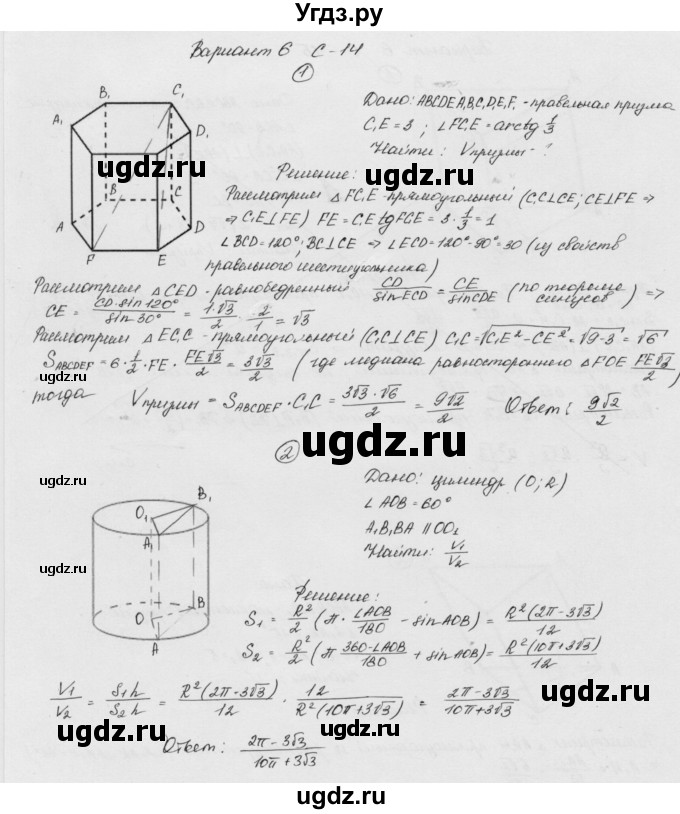 Угдз.ру
Вариант 6 С-14
1
B₁ C₁
A₁ D₁
B C
A D
F E
Дано: ABCDEFA₁B₁C₁D₁E₁F₁ - правельная призма
C₁E = 3 ; ∠FC₁E = arctg 1/3
Найти: Vпризмы - ?
Решение:
Рассмотрим △FC₁E - прямоугольный (C₁C⊥CE; CE⊥FE ⇒
⇒ C₁E⊥FE) FE = C₁E tg FCE = 3 · 1/3 = 1
∠BCD = 120°; BC⊥CE ⇒ ∠ECD = 120° - 90° = 30 (из свойств
правельного шестиугольника)
Рассмотрим △CED - равнобедренный CD/sin ECD = CE/sin CDE (по теореме синусов) ⇒
CE = CD · sin 120°/sin 30° = 1·√3/2 · 2/1 = √3
Рассмотрим △EC₁C - прямоугольный (C₁C⊥CE) C₁C = √C₁E² - CE² = √9-3 = √6
S ABCDEF = 6 · 1/2 · FE · FE√3/2 = 3√3/2 (где медиана равностороннего △FOE FE√3/2)
тогда Vпризмы = S ABCDEF · C₁C = 3√3 · √6/2 = 9√2/2 Ответ: 9√2/2
2
Дано: цилиндр (O; R)
∠AOB = 60°
A₁B₁BA ∥ OO₁
Найти: V₁/V₂
O₁ B₁
A₁
O B
A
Решение:
S₁ = R²/2 (π · ∠AOB/180 - sin AOB) = R²(2π - 3√3)/12
S₂ = R²/2 (π 360-∠AOB/180 + sin AOB) = R²(10π + 3√3)/12
V₁/V₂ = S₁h/S₂h = R²(2π - 3√3)/12 · 12/R²(10π + 3√3) = 2π - 3√3/10π + 3√3
Ответ: 2π - 3√3/10π + 3√3
ugdz.ru
ugdz.ru
ugdz.ru
ugdz.ru
ugdz.ru
ugdz.ru
ugdz.ru
ugdz.ru
ugdz.ru
ugdz.ru
ugdz.ru
ugdz.ru